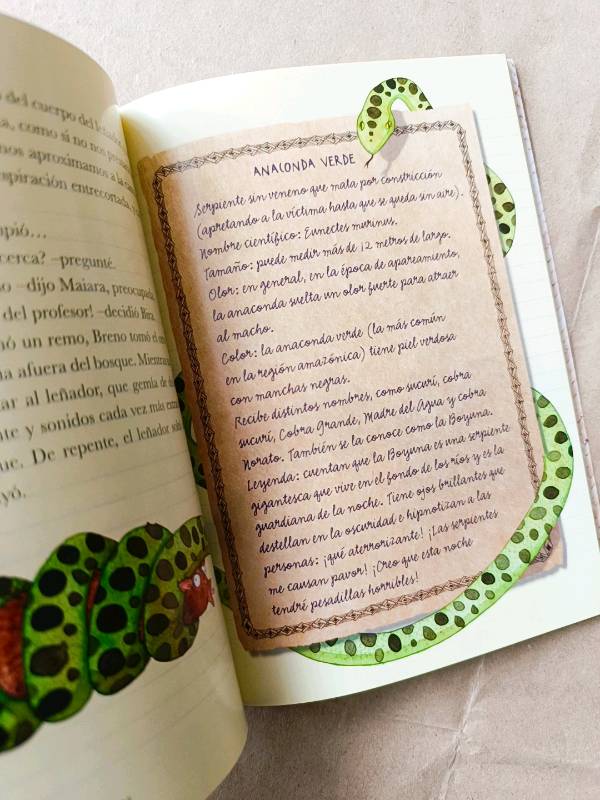 o del cuerpo del leñador,
a, como si no nos
nos aproximamos a la
spiración entrecortada,
pió...
cerca? –pregunté.
so –dijo Maiara, preocupada
del profesor! –decidió
nó un remo, Breno tomó el
na afuera del bosque. Mientras
tar al leñador, que gemía de
nte y sonidos cada vez más
ue. De repente, el leñador
ayó.
ANACONDA VERDE
Serpiente sin veneno que mata por constricción
(apretando a la víctima hasta que se queda sin aire).
Nombre científico: Eunectes murinus.
Tamaño: puede medir más de 12 metros de largo.
Olor: en general, en la época de apareamiento,
la anaconda suelta un olor fuerte para atraer
al macho.
Color: la anaconda verde (la más común
en la región amazónica) tiene piel verdosa
con manchas negras.
Recibe distintos nombres, como sucurí, cobra
sucurí, Cobra Grande, Madre del Agua y cobra
Norato. También se la conoce como la Boyuna.
Leyenda: cuentan que la Boyuna es una serpiente
gigantesca que vive en el fondo de los ríos y es la
guardiana de la noche. Tiene ojos brillantes que
destellan en la oscuridad e hipnotizan a las
personas: ¡qué aterrorizante! ¡Las serpientes
me causan pavor! ¡Creo que esta noche
tendré pesadillas horribles!